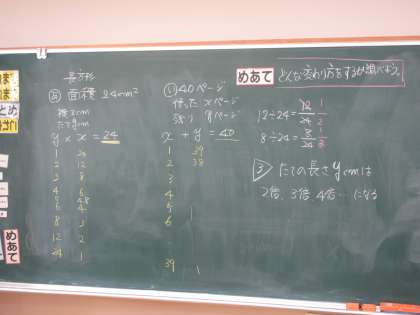 長方形
あ 面積 24cm²
横xcm
たてycm
y × x = 24
1 24
2 12
3 8
4 6
5 4.8
6 4
8 3
12 2
24 1
い 40ページ
使った xページ
残り yページ
x + y = 40
1 39
2 38
3
4
5
6
39 1
めあて どんな変わり方をするか調べよう。
12÷24=12/24 1/2
8÷24=8/24 1/3
③ たての長さycmは
2倍、3倍、4倍…になる
まとめ
めあて